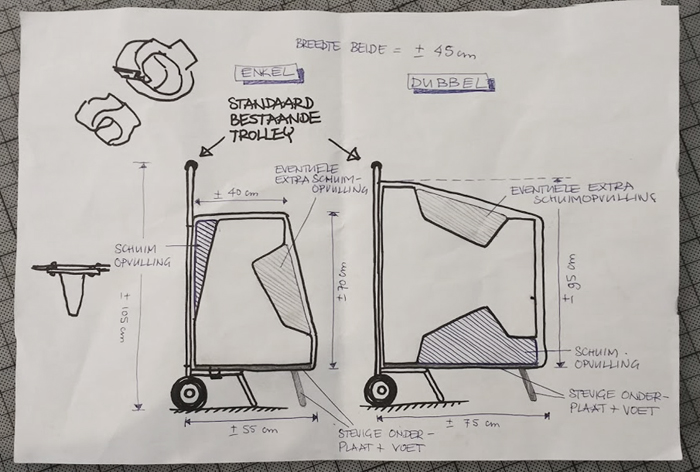 BREEDTE BEIDE = ± 45 cm
ENKEL
DUBBEL
STANDAARD
BESTAANDE
TROLLEY
± 40 cm
EVENTUELE
EXTRA SCHUIM-
OPVULLING
EVENTUELE EXTRA
SCHUIMOPVULLING
SCHUIM
OPVULLING
± 105 cm
± 70 cm
± 95 cm
SCHUIM-
OPVULLING
STEVIGE ONDER-
PLAAT + VOET
± 55 cm
STEVIGE ONDER-
PLAAT + VOET
± 75 cm